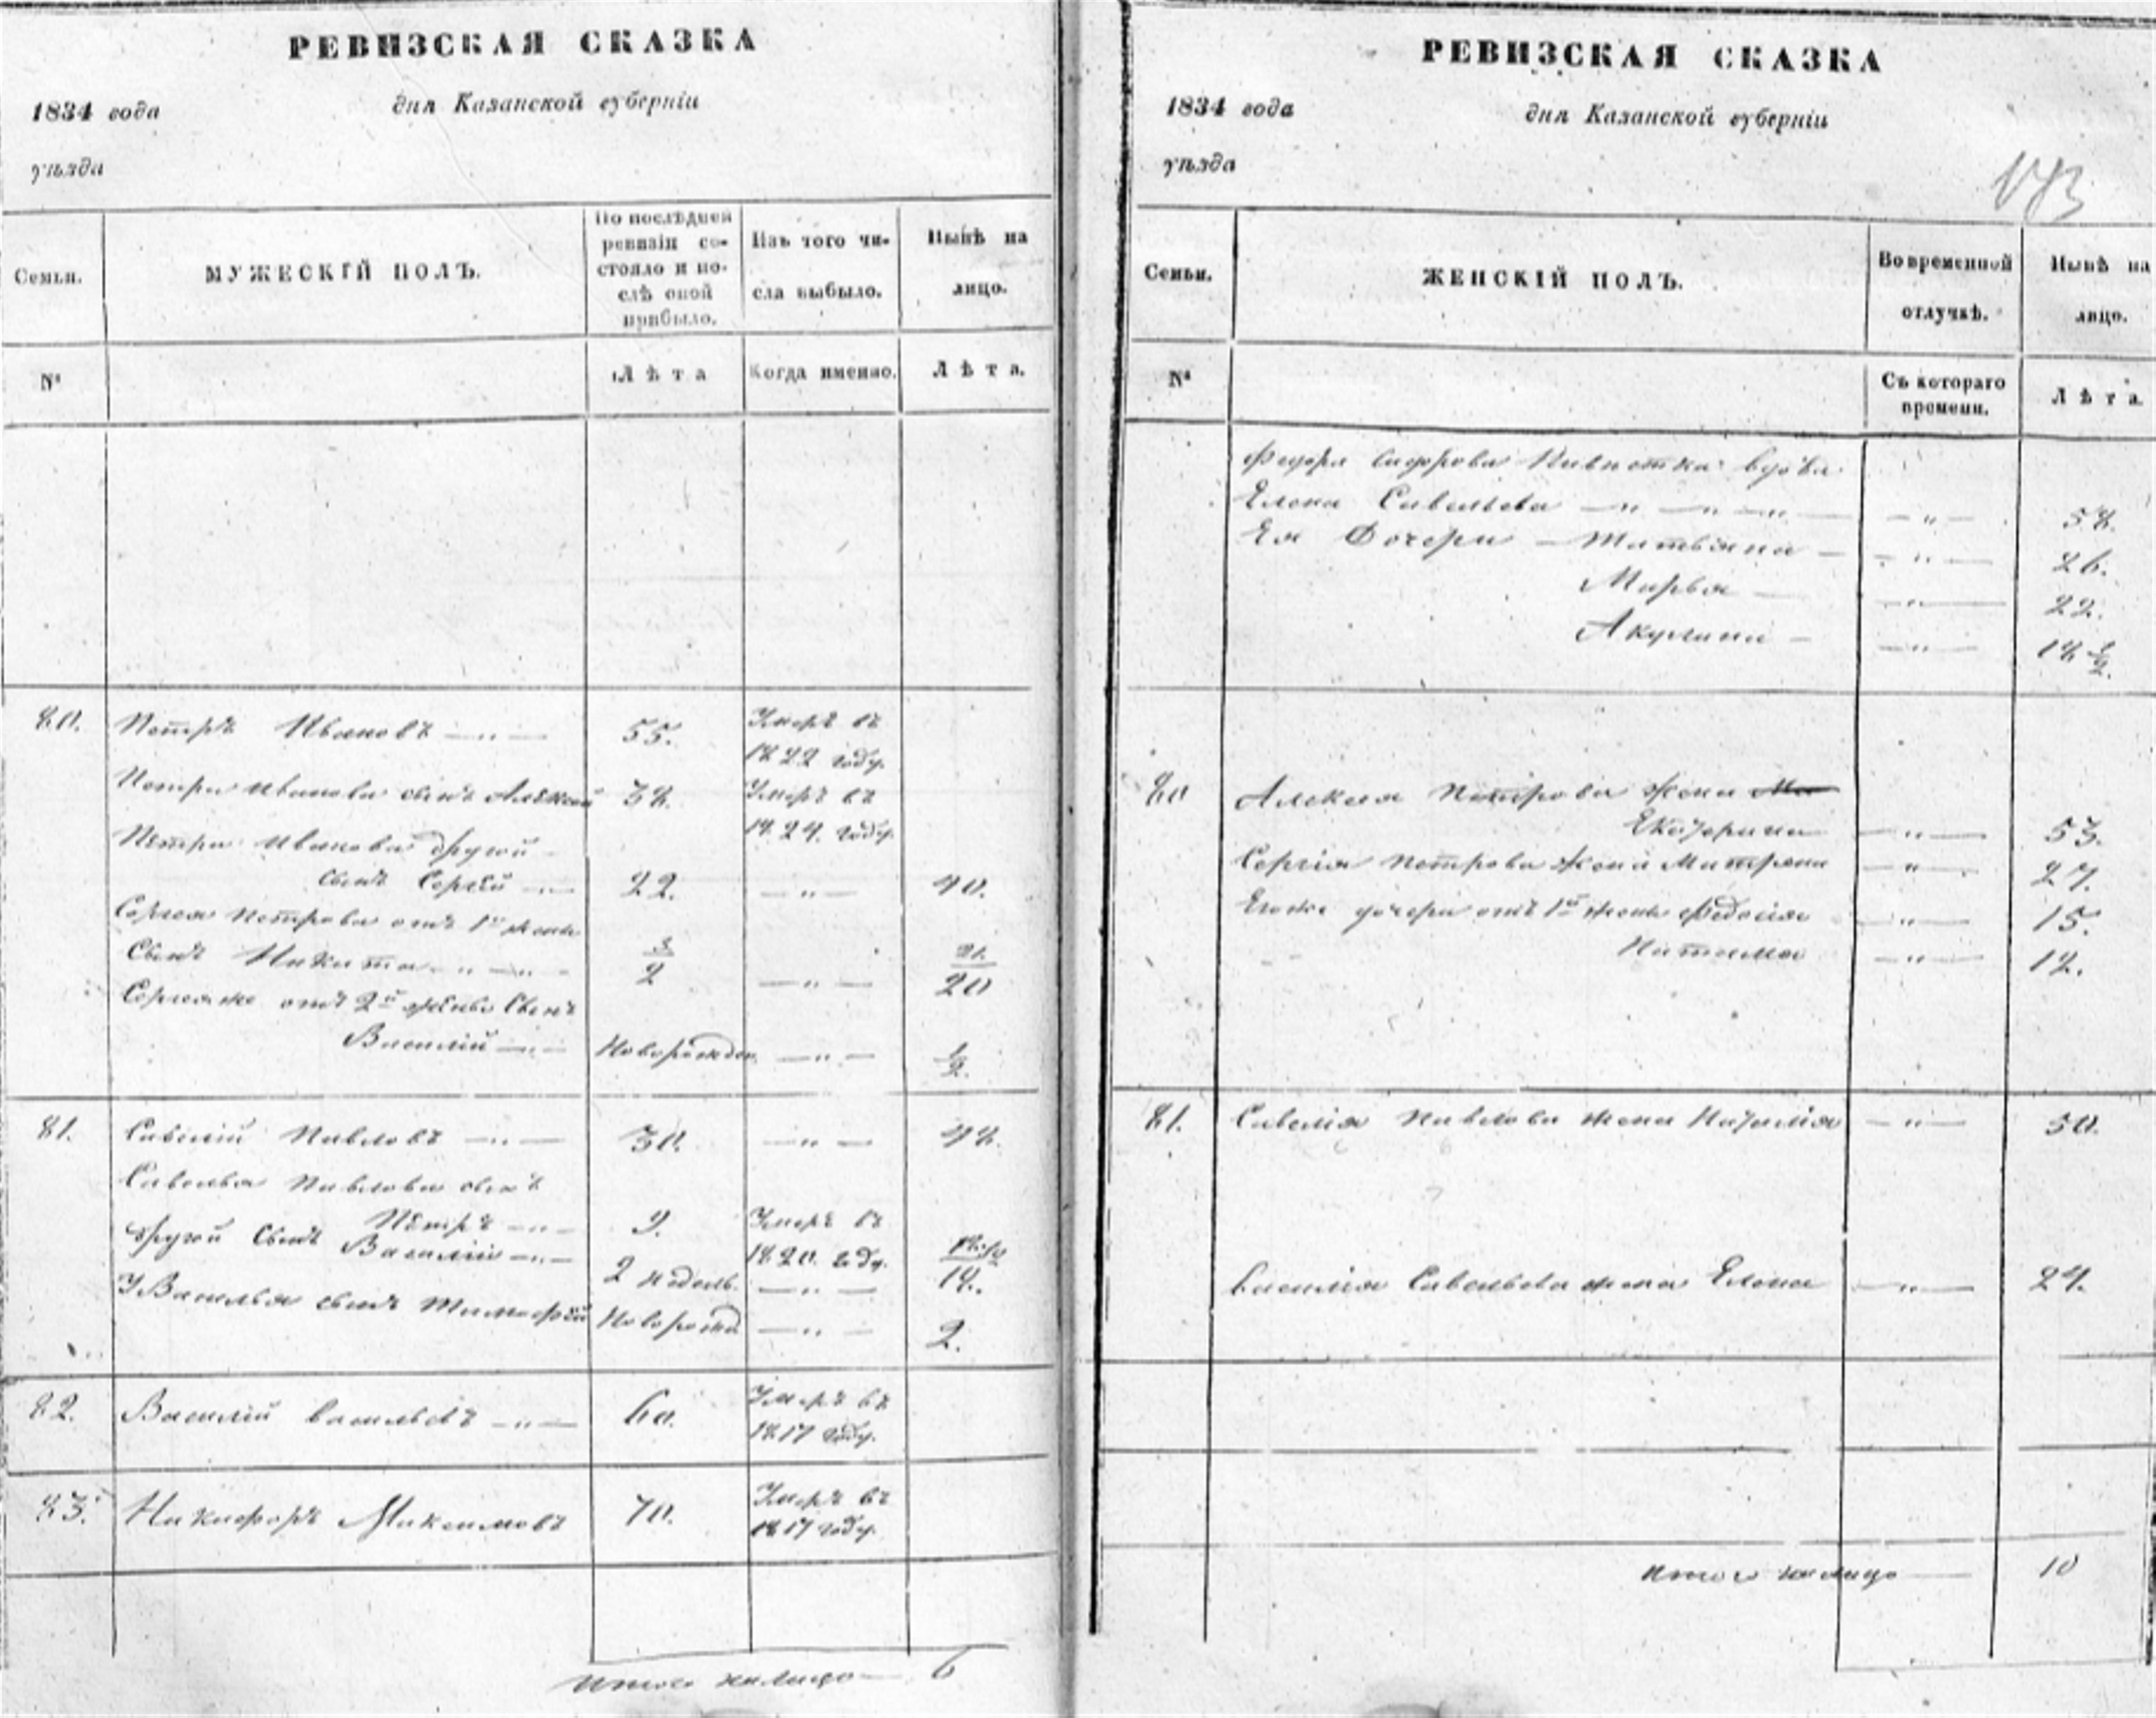 РЕВИЗСКАЯ СКАЗКА
1834 года
дня Казанской губерніи
уѣзда
Семьи.
МУЖЕСКІЙ ПОЛЪ.
По послѣдней
ревизіи со-
стояло и по-
слѣ оной
прибыло.
Изъ того чи-
сла выбыло.
Нынѣ на
лицо.
№
Лѣта
Когда именно.
Лѣта.
80.
Петръ Ивановъ — „ —
55.
Умеръ въ
1822 году.
Петра Иванова сынъ Алексей
38.
Умеръ въ
1824. году.
Петра Иванова другой
сынъ Сергей — „ —
22.
— „ —
40.
Сергея Петрова отъ 1й жены
Сынъ Никита — „ — „ —
3
2
— „ —
21.
20
Сергея же отъ 2й жены Сынъ
Василій — „ —
Новорожден.
— „ —
1/2.
81.
Савелій Павловъ — „ —
30.
— „ —
48.
Савелья Павлова сынъ
Петръ — „ —
9.
Умеръ въ
1820. году.
другой Сынъ Василій — „ —
2 недель.
— „ —
18.
У Василья сынъ Тимофей
Новорожд.
— „ —
2.
82.
Василій Васильевъ — „ —
60.
Умеръ въ
1817 году.
83.
Никифоръ Максимовъ
70.
Умеръ въ
1817 году.
Итого налицо — 6
РЕВИЗСКАЯ СКАЗКА
1834 года
дня Казанской губерніи
уѣзда
Семьи.
ЖЕНСКІЙ ПОЛЪ.
Во временной
отлучкѣ.
Нынѣ на
лицо.
№
Съ котораго
времени.
Лѣта.
Федора Сидорова вдова
Елена Савельева — „ — „ — „ —
— „ —
58.
Ея Дочери — Татьяна —
— „ —
26.
Марья —
— „ —
22.
Акулина —
— „ —
18 1/2.
80
Алексея Петрова жена Ма
Екатерина
— „ —
53.
Сергія Петрова жена Матрена
— „ —
27.
Егоже дочери отъ 1й жены Федосія
— „ —
15.
Наталья
— „ —
12.
81.
Савелія Павлова жена Наталія
— „ —
50.
Василія Савельева жена Елена
— „ —
24.
Итого на лицо —
10